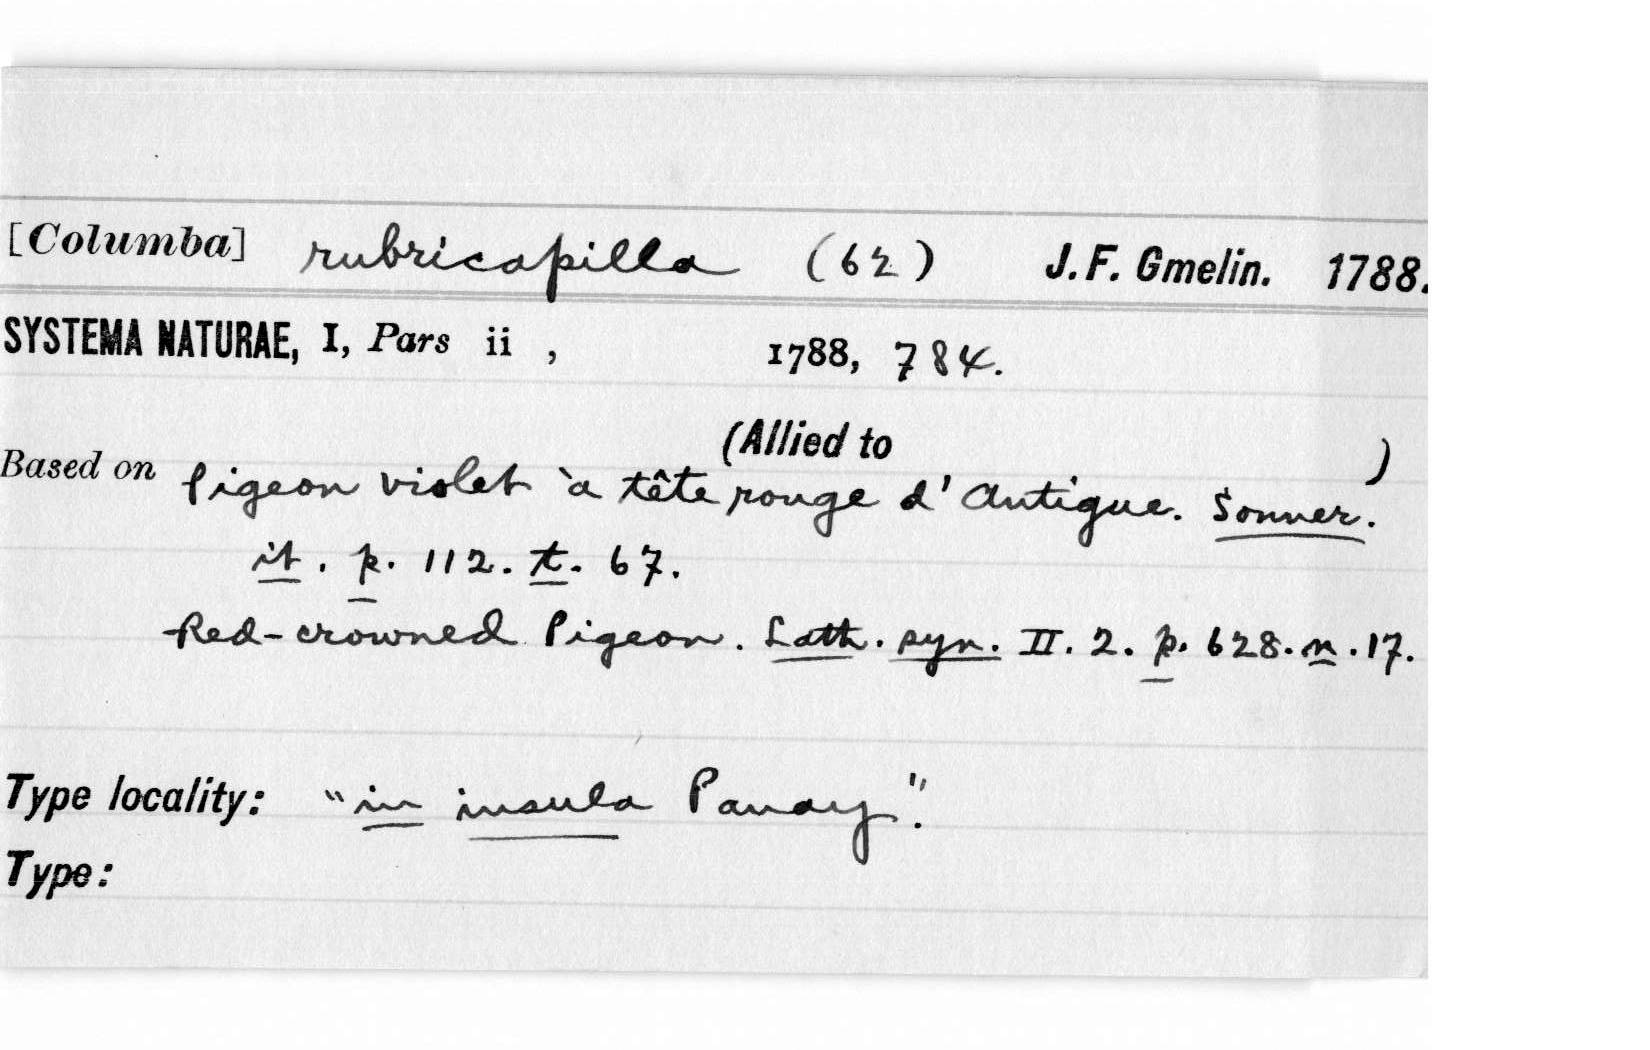 [Columba] rubricapilla (62) J. F. Gmelin. 1788.
SYSTEMA NATURAE, I, Pars ii , 1788, 784.
(Allied to )
Based on Pigeon violet à tête rouge d'Antigue. Sonner.
it. p. 112. t. 67.
Red-crowned Pigeon. Lath. syn. II. 2. p. 628. n. 17.
Type locality: "in insula Panay".
Type: